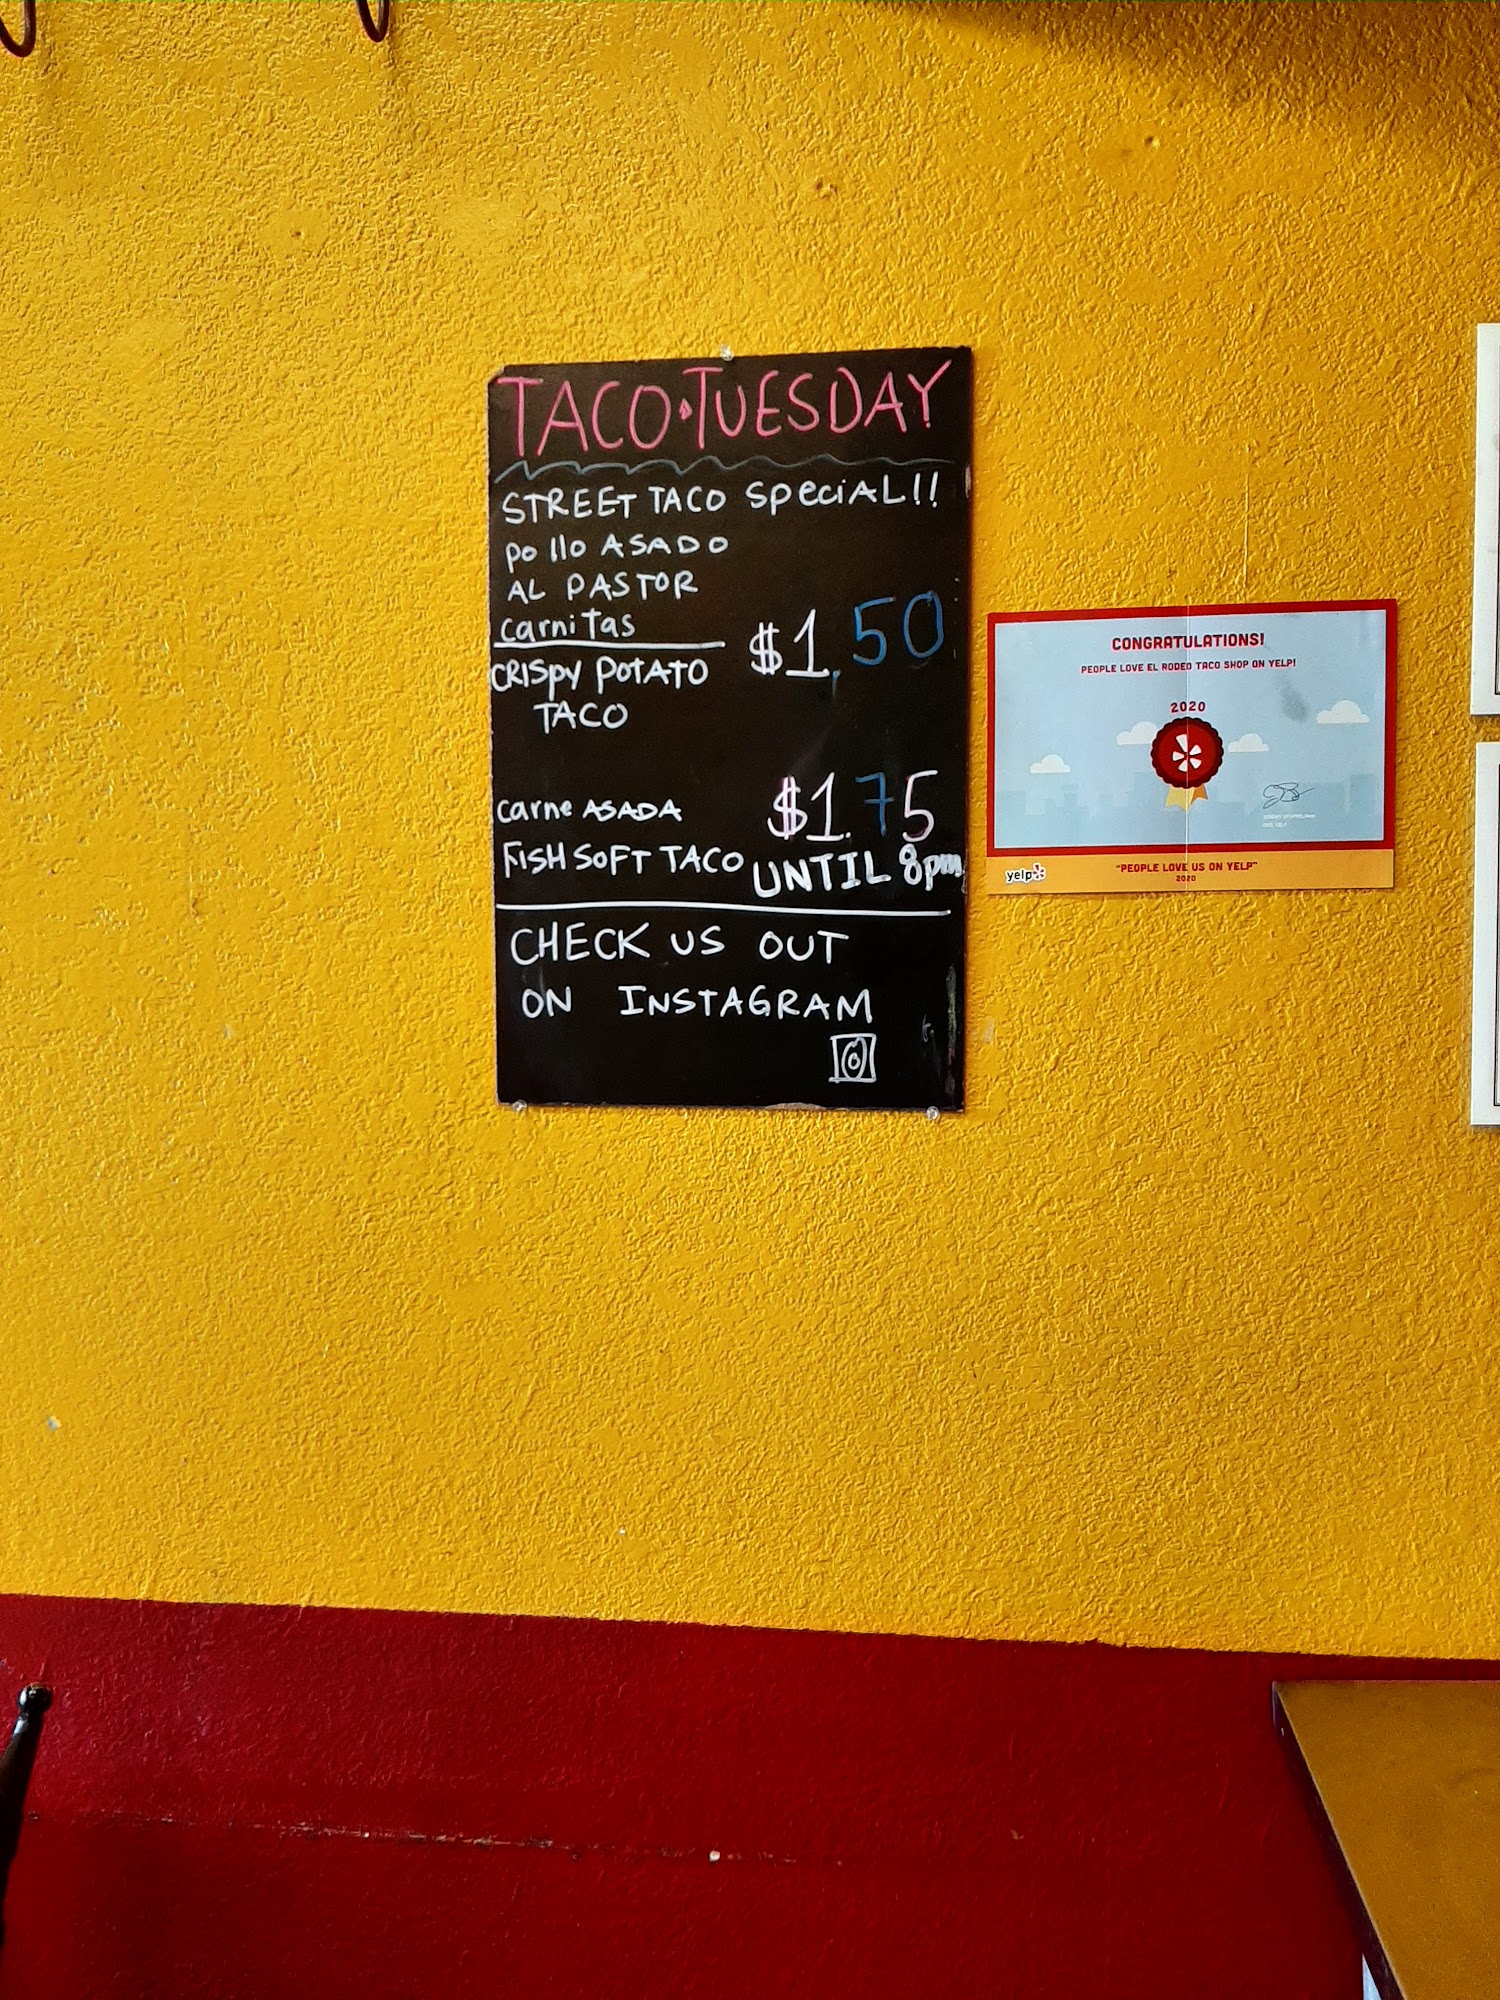 TACO·TUESDAY
STREET TACO SpeciAL!!
pollo ASADO
AL PASTOR
carniTas
$1.50
CRISpy POTATO
TACO
carne ASADA
$1.75
FISH SOFT TACO
UNTIL 8pm
CHECK US OUT
ON INSTAGRAM
CONGRATULATIONS!
PEOPLE LOVE EL RODEO TACO SHOP ON YELP!
2020
JEREMY STOPPELMAN
CEO, YELP
yelp
"PEOPLE LOVE US ON YELP"
2020